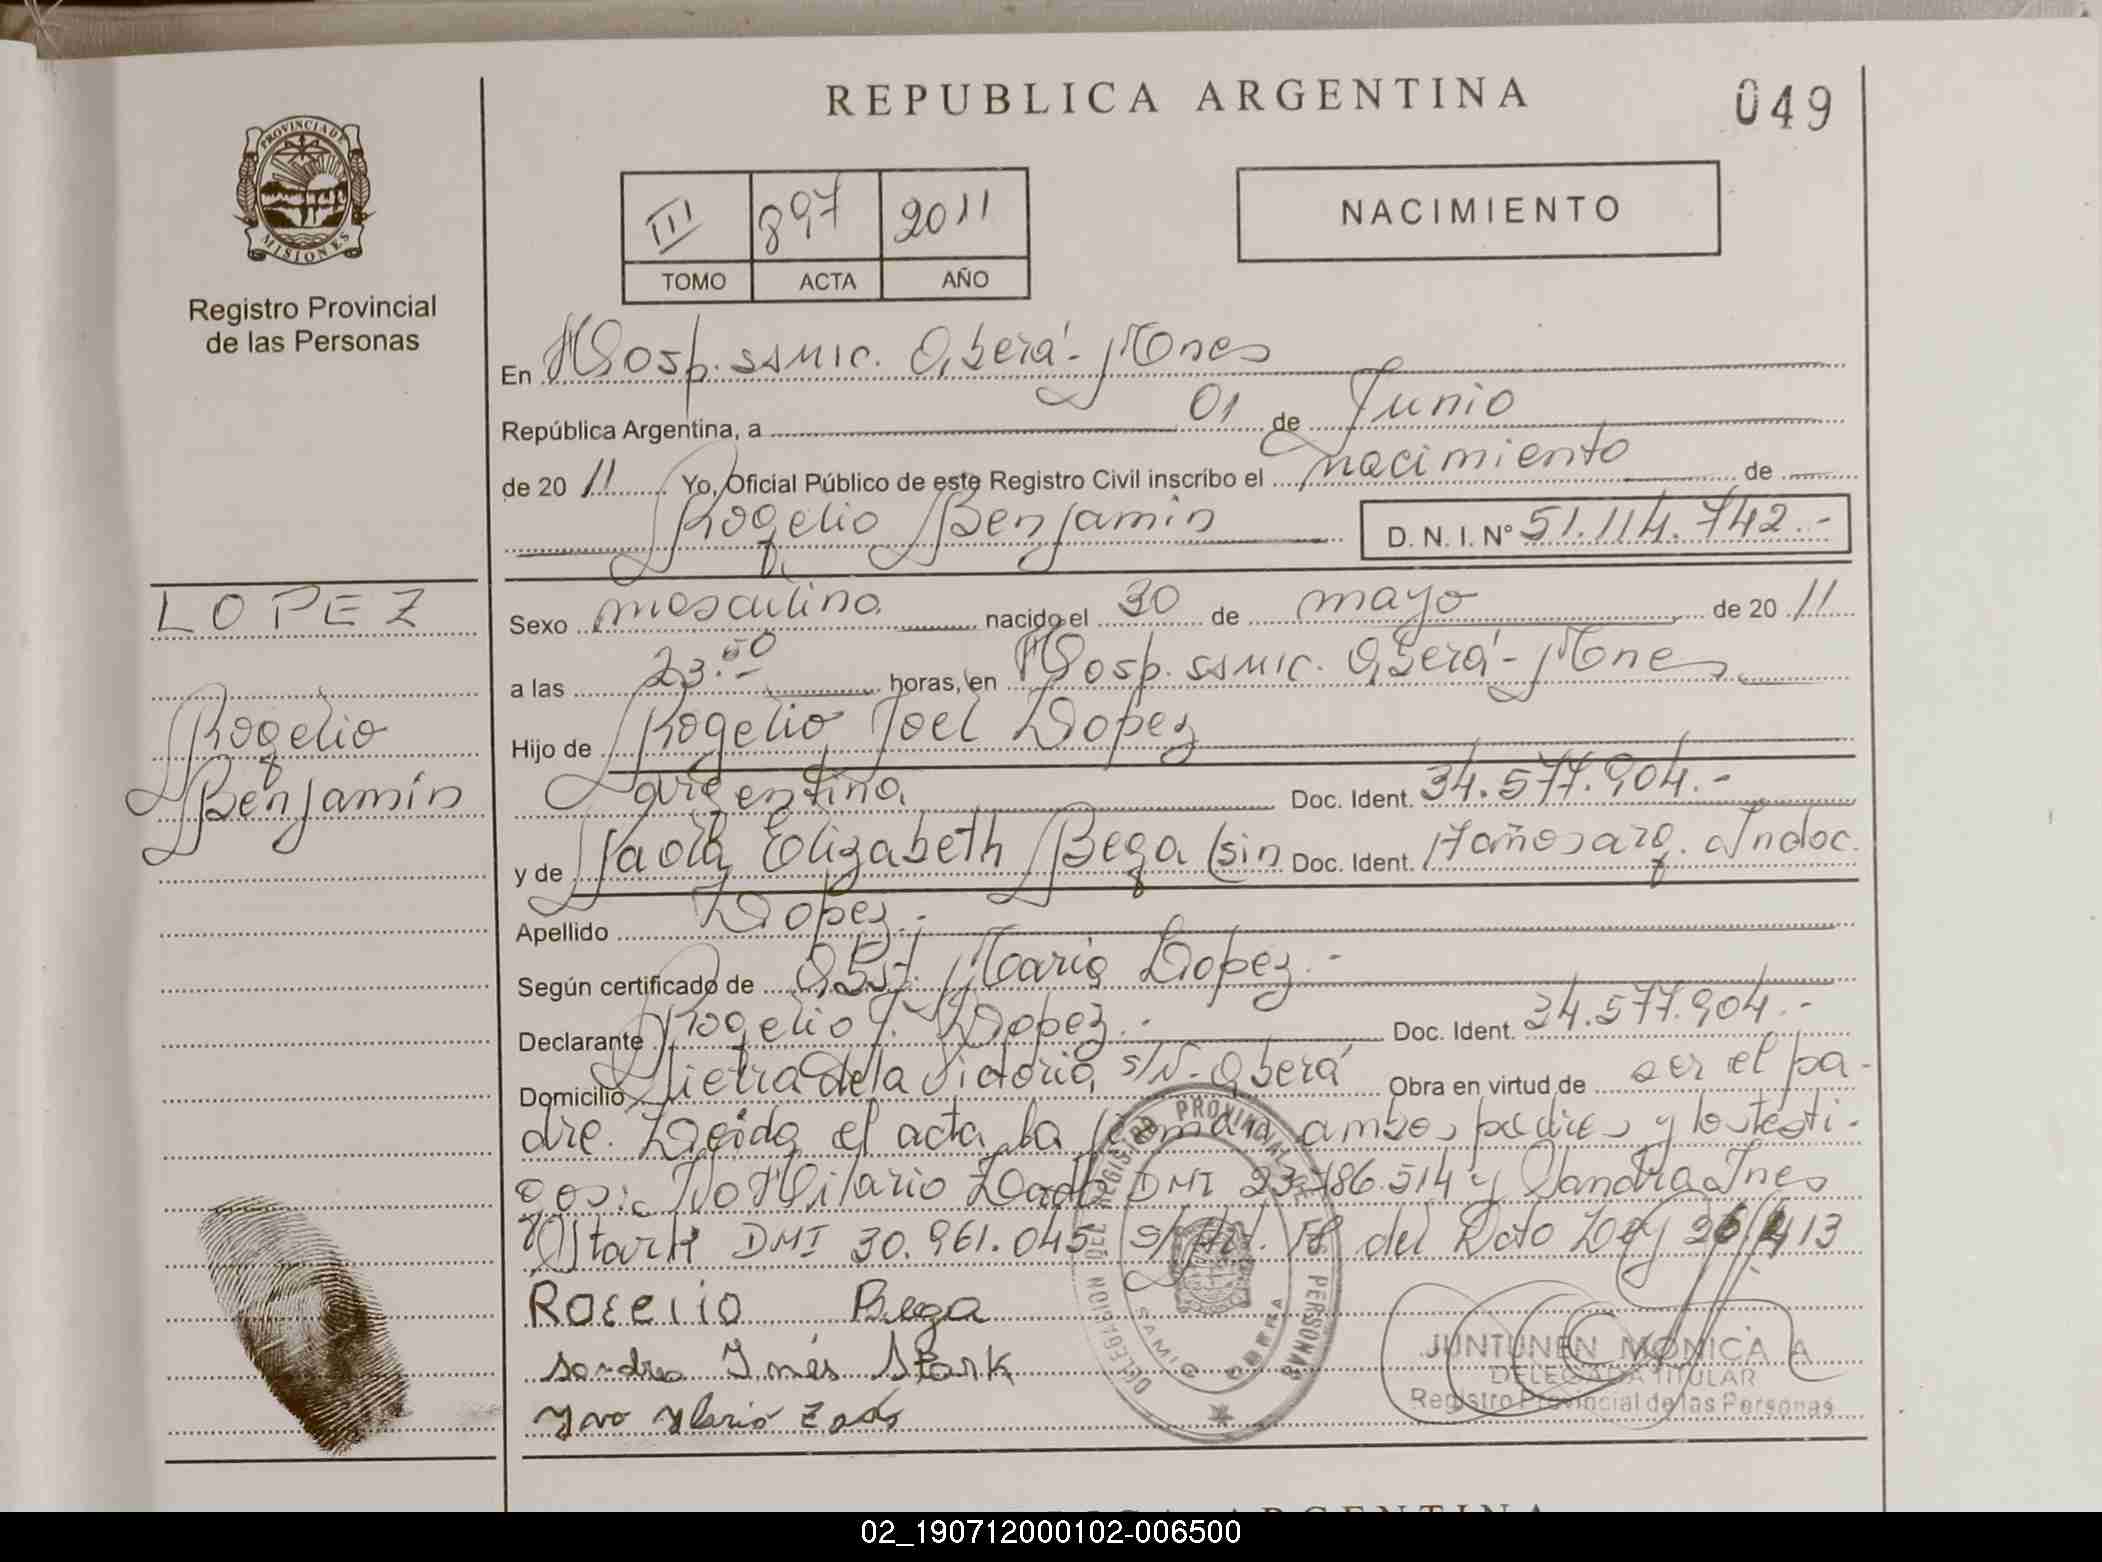 REPUBLICA ARGENTINA
049
PROVINCIA DE MISIONES
Registro Provincial
de las Personas
III 897 2011
TOMO ACTA AÑO
NACIMIENTO
En Hosp. SAMIC. Oberá - Mnes
República Argentina, a 01 de Junio
de 2011 Yo, Oficial Público de este Registro Civil inscribo el nacimiento de
Rogelio Benjamín D. N. I. Nº 51.114.742.-
LOPEZ
Rogelio
Benjamín
Sexo masculino nacido el 30 de mayo de 2011
a las 23.50 horas, en Hosp. SAMIC. Oberá - Mnes
Hijo de Rogelio Joel Lopez
argentino Doc. Ident. 34.577.904.-
y de Paola Elizabeth Bega (sin Doc. Ident. 17 años arg. Indoc.
Apellido Lopez.-
Según certificado de Obst. Maria Lopez.-
Declarante Rogelio J. Lopez.- Doc. Ident. 34.577.904.-
Domicilio Pietra de la Victoria s/N - Oberá Obra en virtud de ser el pa-
dre. Leída el acta la firman ambos padres y los testi-
gos: Ivo Hilario DNI 23.786.514 y Sandra Ines
Stark DNI 30.961.045 s/Art. del Dcto Ley 413
Rogelio Bega
Sandra Inés Stark
Yvo Ylario
DELEGACION DEL REGISTRO PROVINCIAL DE PERSONAS
SAMIC OBERA
JUNTUNEN MONICA A
DELEGADA TITULAR
Registro Provincial de las Personas
02_190712000102-006500